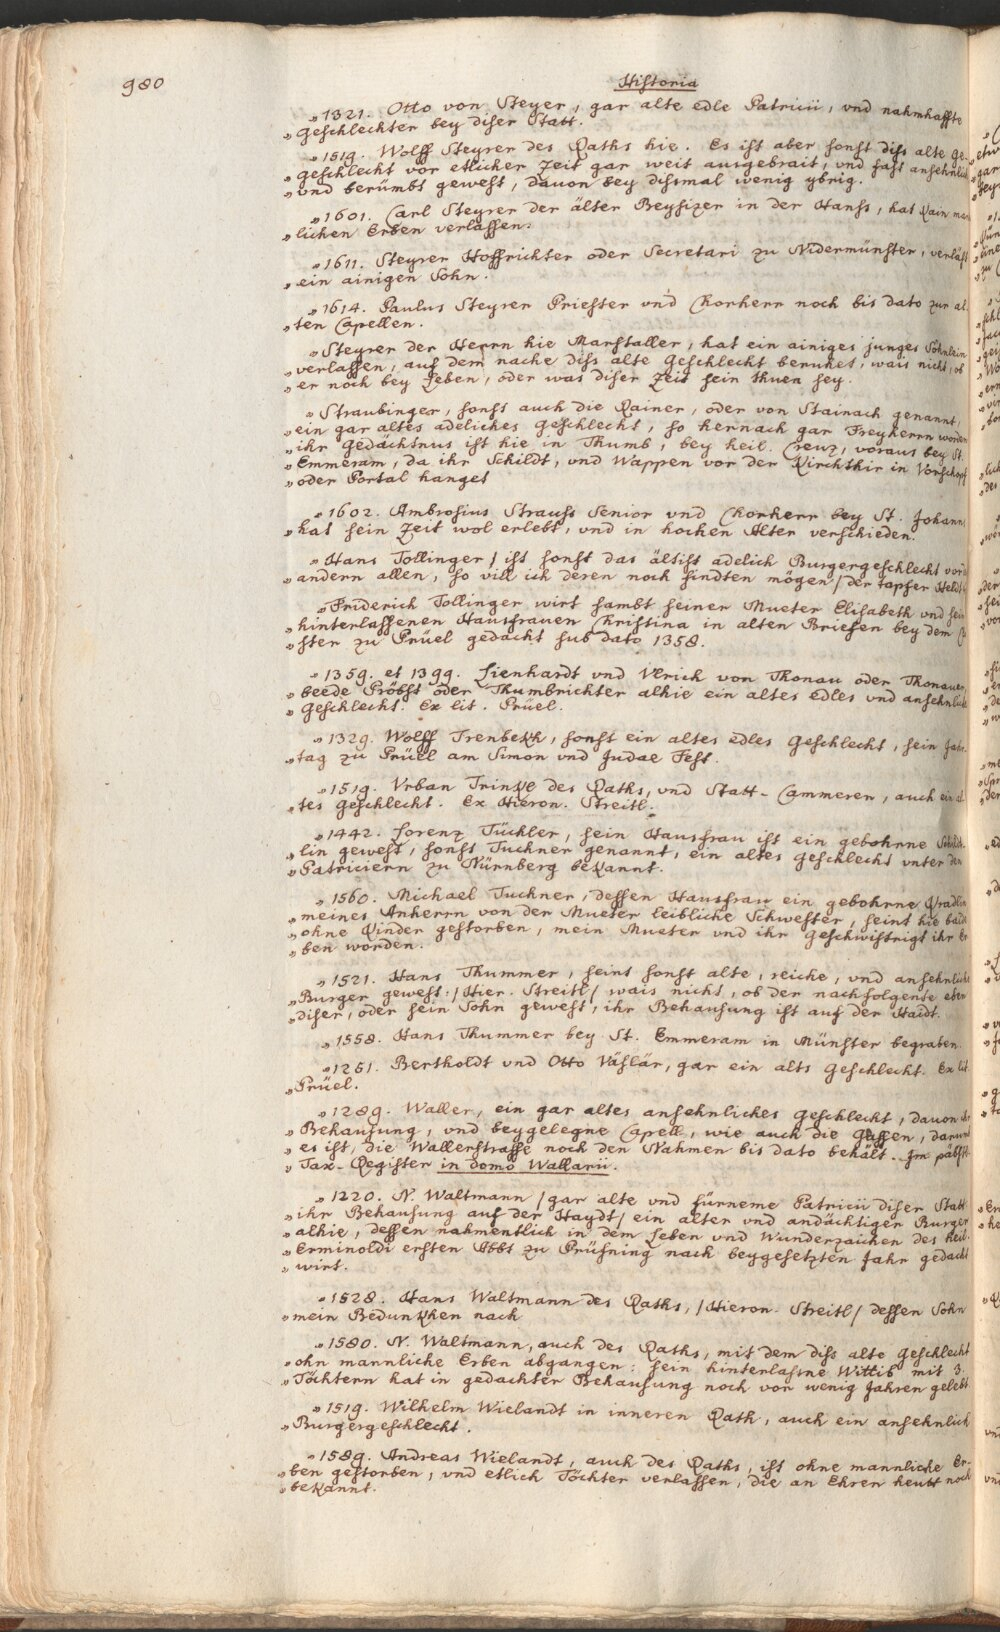 980
Historia
„1321. Otto von Steyer, gar alte edle Patricii, vnd nahmhaffte
„Geschlechter bey diser Statt.
„1519. Wolff Steyrer des Raths hie. Es ist aber sonst diss alte Ge-
„geschlecht vor etlicher Zeit gar weit ausgebrait, vnd fast ansehnlich
„vnd berümbt gewest, dauon bey dissmal wenig ybrig.
„1601. Carl Steyrer der älter Beysizer in der Hanss, hat kain man
„lichen Erben verlassen.
„1611. Steyrer Hoffrichter oder Secretari zu Nidermünster, verläst
„ein ainigen Sohn.
„1614. Paulus Steyrer Priester vnd Chorherr noch bis dato zur al-
„ten Capellen.
„Steyrer der Herrn hie Marstaller, hat ein ainiges junges Söhnlein
„verlassen, auf dem nache diss alte Geschlecht beruhet, wais nicht, ob
„er noch bey Leben, oder was diser Zeit sein thuen sey.
„Straubinger, sonst auch die Rainer, oder von Stainach genannt,
„ein gar altes adeliches Geschlecht, so hernach gar Freyherrn worden
„ihr Gedächtnus ist hie in Thumb, bey heil. Creuz, voraus bey St.
„Emmeram, da ihr Schildt, vnd Wappen vor der Kirchthir in Vorschopf
„oder Portal hanget
„1602. Ambrosius Strauss Senior vnd Chorherr bey St. Johann
„hat sein Zeit wol erlebt, vnd in hochen Alter verschieden.
„Hans Tollinger / ist sonst das ältist adelich Burgergeschlecht vor
„andern allen, so vill ich deren noch findten mögen / der tapfer Heldt
„Friderich Tollinger wirt sambt seiner Mueter Elisabeth vnd sein
„hinterlassenen Hausfrauen Christina in alten Briefen bey dem C
„ster zu Prüel gedacht sub dato 1358.
„1359. et 1399. Lienhardt vnd Vlrich von Thonau oder Thonauer,
„beede Pröbst oder Thumbrichter alhie ein altes edles vnd ansehnlich
„Geschlecht. Ex lit. Prüel.
„1329. Wolff Trenbekh, sonst ein altes edles Geschlecht, sein Jahr-
„tag zu Prüel am Simon vnd Judae Fest.
„1519. Vrban Trinkl des Raths, vnd Statt-Cammerer, auch ein al-
„tes Geschlecht. Ex Hieron. Streitl.
„1442. Lorenz Tückler, sein Hausfrau ist ein gebohrne
„lin gewest, sonst Tuckner genannt, ein altes Geschlecht vnter den
„Patriciern zu Nürnberg bekannt.
„1560. Michael Tuckner, dessen Hausfrau ein gebohrne Kradlin
„meines Anherrn von der Mueter leibliche Schwester, seint hie baide
„ohne Kinder gestorben, mein Mueter vnd ihr Geschwistrigt ihr Er-
„ben worden.
„1521. Hans Thummer, seint sonst alte, reiche, vnd ansehnliche
„Burger gewest. / Hier. Streitl / wais nicht, ob der nachfolgente eben
„diser, oder sein Sohn gewest, ihr Behausung ist auf der Haidt.
„1558. Hans Thummer bey St. Emmeram in Münster begraben.
„1251. Bertholdt vnd Otto Väslär, gar ein alts Geschlecht. Ex lit.
„Prüel.
„1289. Waller, ein gar altes ansehnliches Geschlecht, dauon ihr
„Behausung, vnd beygelegne Capell, wie auch die Gassen, darum
„es ist, die Wallerstrasse noch den Nahmen bis dato behält. Im päbstl.
„Tax-Register in domo Wallarii.
„1220. N. Waltmann / gar alte vnd fürneme Patricii diser Statt
„ihr Behausung auf der Haydt / ein alter vnd andächtiger Burger
„alhie, dessen nahmentlich in dem Leben vnd Wunderzaichen des heil.
„Erminoldi ersten Abbt zu Prüfning nach beygesetzten Jahr gedacht
„wirt.
„1528. Hans Waltmann des Raths, / Hieron. Streitl / dessen Sohn
„mein Bedunkhen nach
„1580. N. Waltmann, auch des Raths, mit dem diss alte Geschlecht
„ohn mannliche Erben abgangen: sein hinterlasne Wittib mit 3.
„Töchtern hat in gedachter Behausung noch vor wenig Jahren gelebt.
„1519. Wilhelm Wielandt in inneren Rath, auch ein ansehnlich
„Burgergeschlecht.
„1589. Andreas Wielandt, auch des Raths, ist ohne mannliche Er-
„ben gestorben, vnd etlich Töchter verlassen, die an Ehren heutt noch
„bekannt.